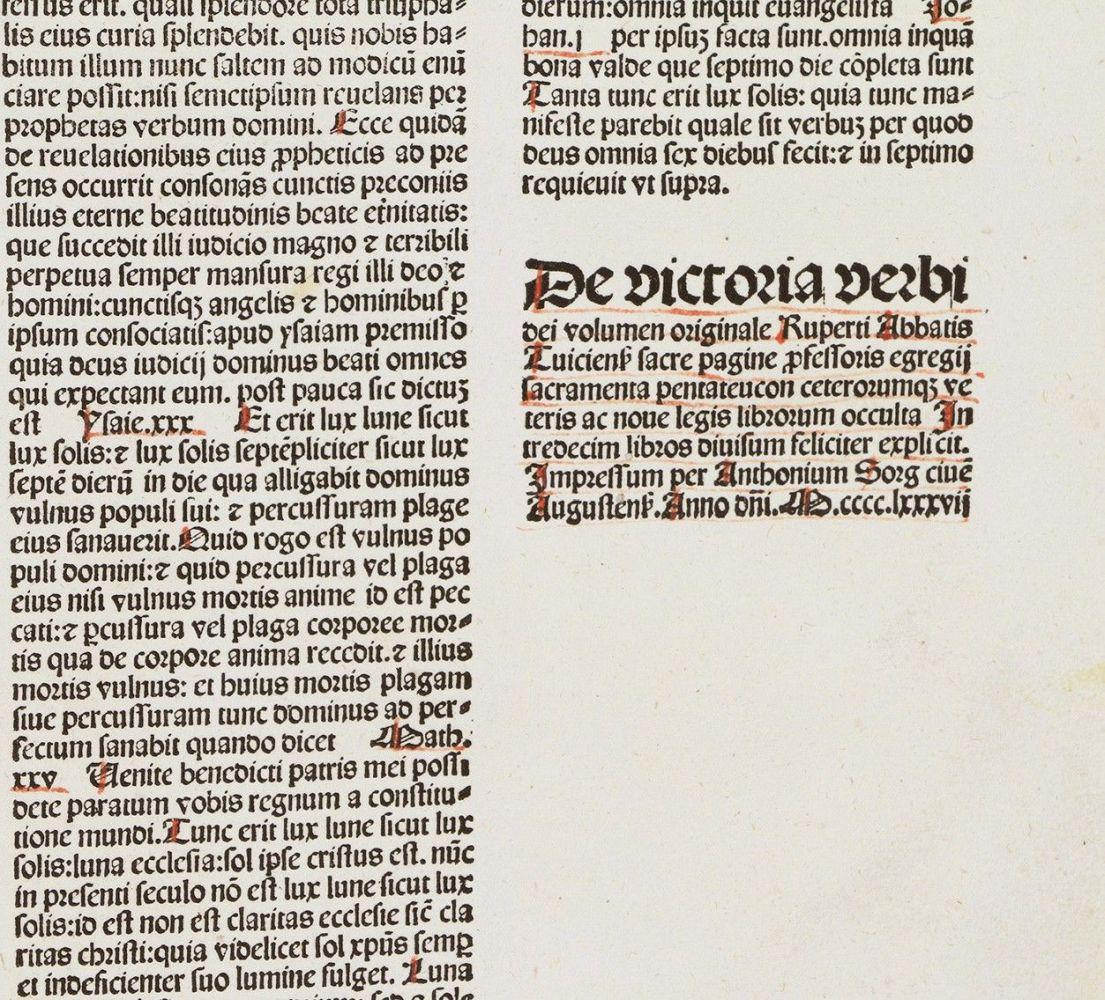 lis eius curia splendebit. quis nobis ha⸗
bitum illum nunc saltem ad modicū enū
ciare possit:nisi semetipsum reuelans per
prophetas verbum domini. Ecce quidā
de reuelationibus eius ꝓpheticis ad pre
sens occurrit consonās cunctis preconiis
illius eterne beatitudinis beate et̄nitatis:
que succedit illi iudicio magno ⁊ terribili
perpetua semper mansura regi illi deo ⁊
homini:cunctisqꝫ angelis ⁊ hominibus ꝑ
ipsum consociatis:apud ysaiam premisso
quia deus iudicij dominus beati omnes
qui expectant eum. post pauca sic dictuꝫ
est Ysaie.xxx Et erit lux lune sicut
lux solis:⁊ lux solis septēpliciter sicut lux
septē dierū in die qua alligabit dominus
vulnus populi sui: ⁊ percussuram plage
eius sanauerit.Quid rogo est vulnus po
puli domini:⁊ quid percussura vel plaga
eius nisi vulnus mortis anime id est pec
cati:⁊ ꝑcussura vel plaga corporee mor⸗
tis qua de corpore anima recedit.⁊ illius
mortis vulnus: et huius mortis plagam
siue percussuram tunc dominus ad per⸗
fectum sanabit quando dicet Math.
xxv Uenite benedicti patris mei possi
dete paratum vobis regnum a constitu⸗
tione mundi.Tunc erit lux lune sicut lux
solis:luna ecclesia:sol ipse cristus est. nūc
in presenti seculo nō est lux lune sicut lux
solis:id est non est claritas ecclesie sic̄ cla
ritas christi:quia videlicet sol xpūs semꝑ
et indeficienter suo lumine fulget. Luna
dierum:omnia inquit euangelista Jo⸗
han.j per ipsuꝫ facta sunt.omnia inquā
bona valde que septimo die cōpleta sunt
Tanta tunc erit lux solis: quia tunc ma⸗
nifeste parebit quale sit verbuꝫ per quod
deus omnia sex diebus fecit:⁊ in septimo
requieuit vt supra.
De victoria verbi
dei volumen originale Ruperti Abbatis
Tuicienꝭ sacre pagine ꝓfessoris egregij
sacramenta pentateucon ceterorumqꝫ ve
teris ac noue legis librorum occulta In
tredecim libros diuisum feliciter explicit.
Impressum per Anthonium Sorg ciuē
Augustenꝭ.Anno dn̄i.M.cccc.lxxxvij